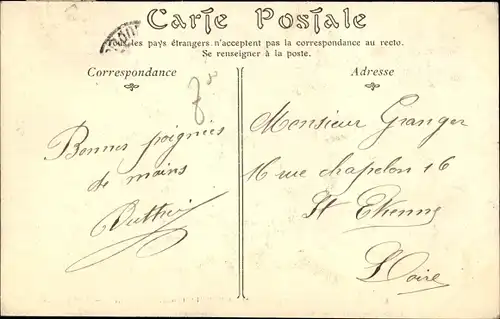 Carte Postale
les pays étrangers n'acceptent pas la correspondance au recto.
Se renseigner à la poste.
Correspondance
Adresse
Bonnes poignées
de mains
Monsieur Granger
16 rue chapelon 16
St Etienne
Loire